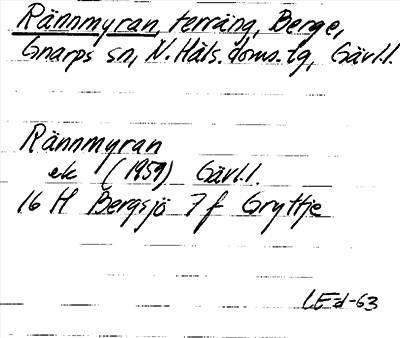 Rännmyran, terräng, Berge,
Gnarps sn, N. Häls. doms. tg, Gävl.l.
Rännmyran
ek (1959) Gävl.l.
16 H Bergsjö 7 f Gryttje
LEd-63